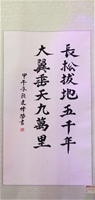 長松拔地五千年
大翼垂天九萬里
甲午
書